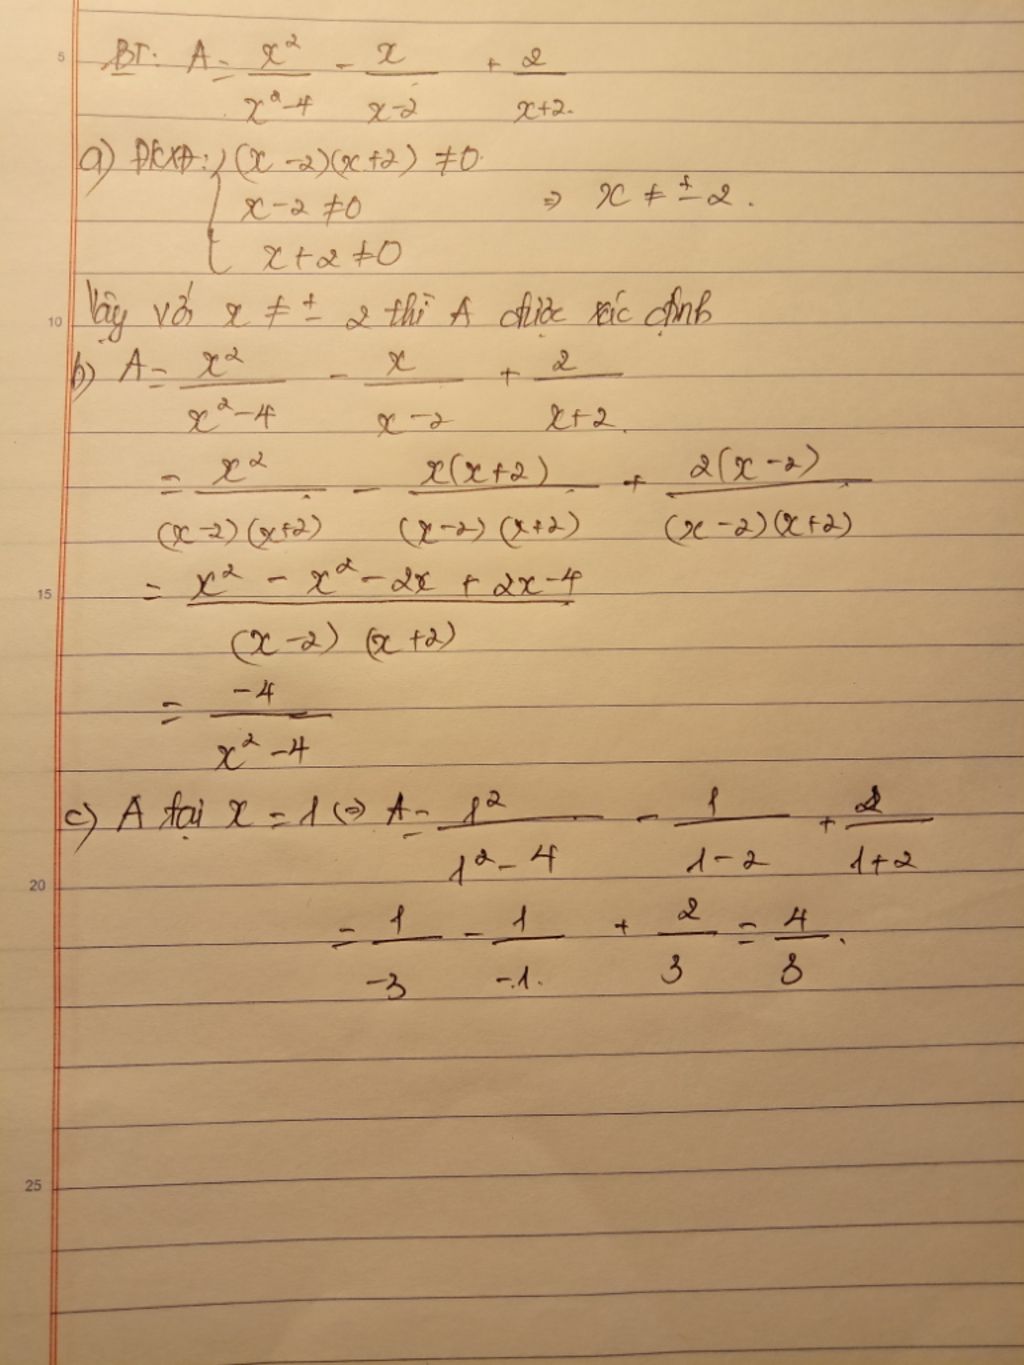 5
BT: A = x²/(x²-4) - x/(x-2) + 2/(x+2).
a) ĐKXĐ: { (x-2)(x+2) ≠ 0
x-2 ≠ 0 ⇒ x ≠ ± 2.
x+2 ≠ 0
10
Vậy với x ≠ ± 2 thì A được xác định
b) A = x²/(x²-4) - x/(x-2) + 2/(x+2).
= x²/((x-2)(x+2)) - x(x+2)/((x-2)(x+2)) + 2(x-2)/((x-2)(x+2))
15
= (x² - x² - 2x + 2x - 4)/((x-2)(x+2))
= -4/(x²-4)
c) A tại x = 1 ⇔ A = 1²/(1²-4) - 1/(1-2) + 2/(1+2)
20
= 1/-3 - 1/-1. + 2/3 = 4/3.
25